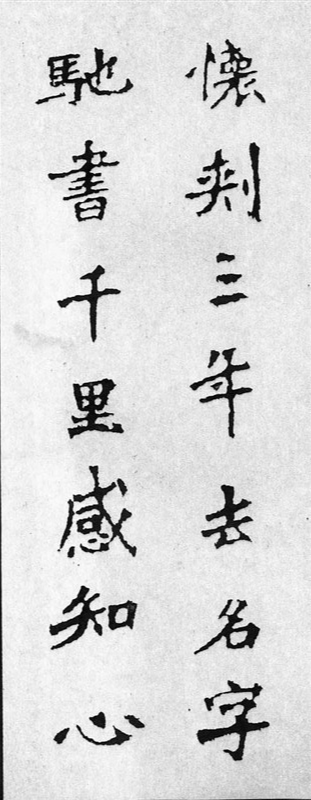 懷刺三年去名字
馳書千里感知心